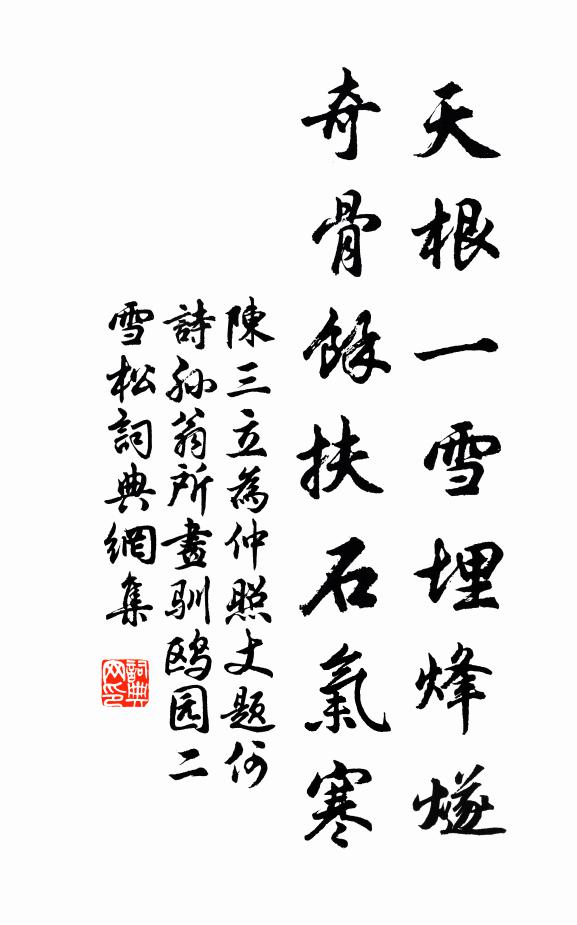 天根一雪埋烽燧
奇骨餘扶石氣寒
陳三立為仲照丈題何
詩孙翁所畫馴鸥园二
雪松詞典網集
詞典网印